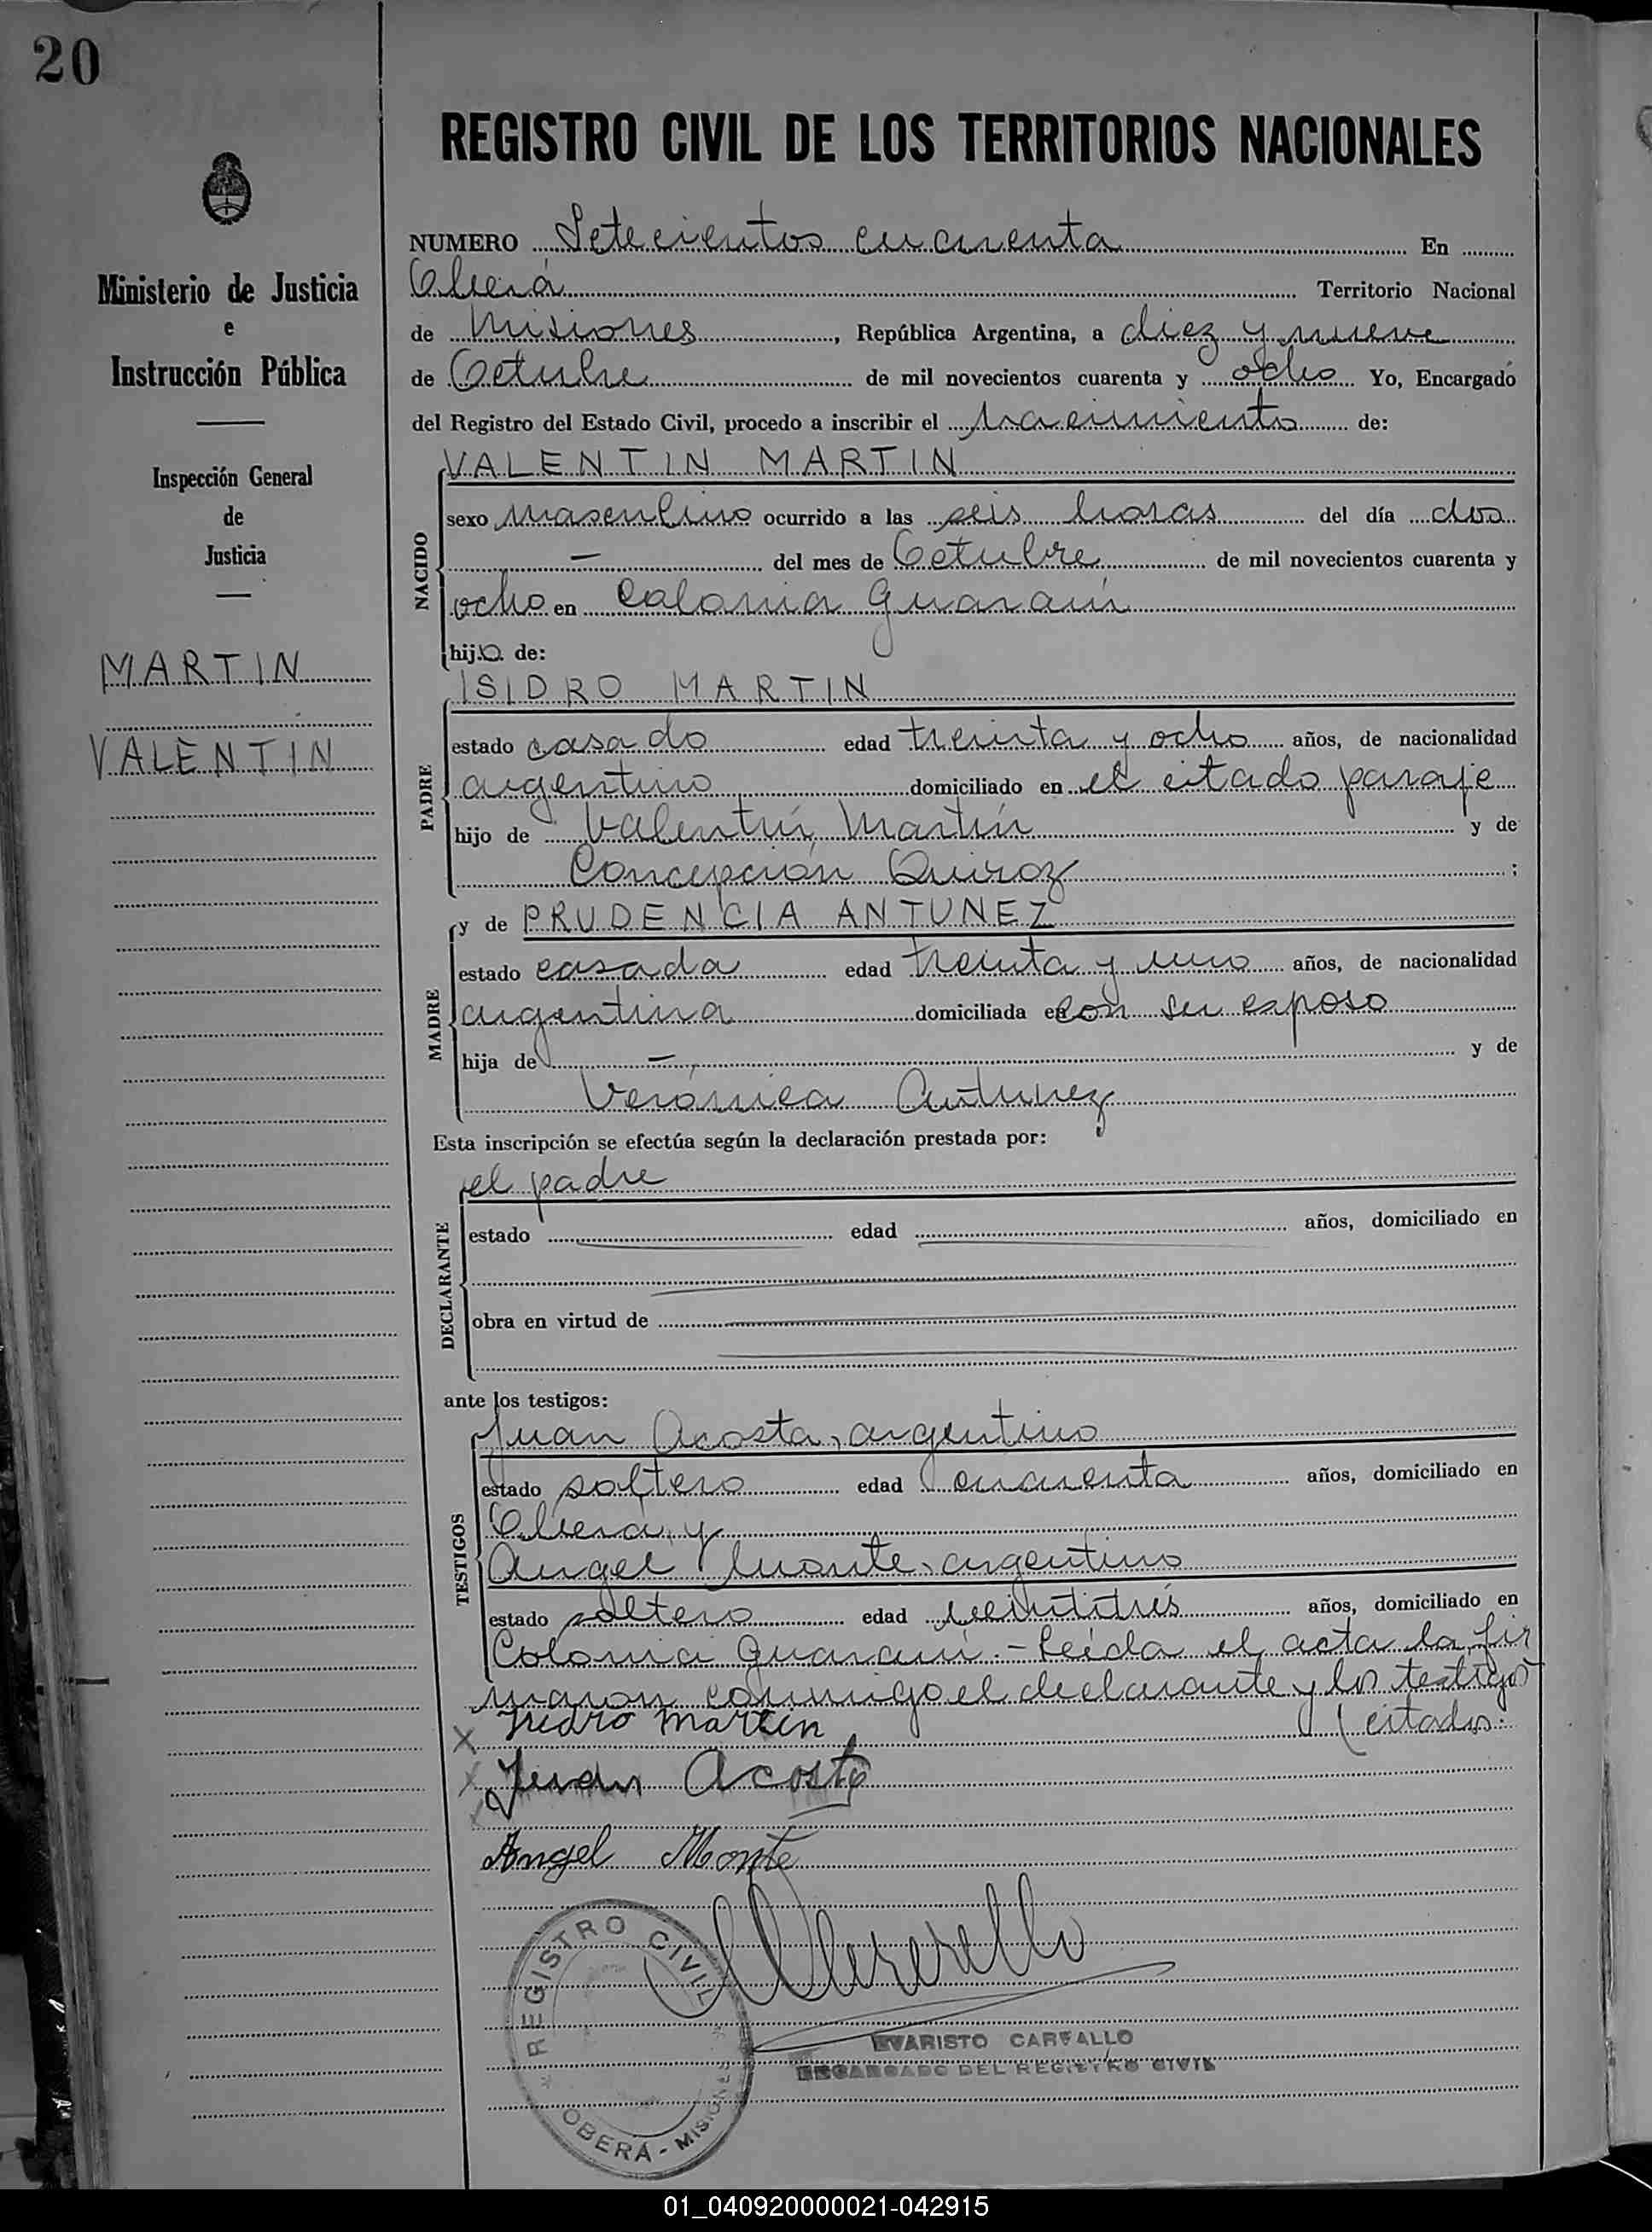 20
REGISTRO CIVIL DE LOS TERRITORIOS NACIONALES
Ministerio de Justicia
e
Instrucción Pública
Inspección General
de
Justicia
MARTIN
VALENTIN
NUMERO Setecientos cincuenta En
Oberá Territorio Nacional
de Misiones, República Argentina, a diez y nueve
de Octubre de mil novecientos cuarenta y ocho Yo, Encargado
del Registro del Estado Civil, procedo a inscribir el nacimiento de:
NACIDO
VALENTIN MARTIN
sexo masculino ocurrido a las seis horas del día dos
— del mes de Octubre de mil novecientos cuarenta y
ocho en Colonia Guaraní
hijo de:
PADRE
ISIDRO MARTIN
estado casado edad treinta y ocho años, de nacionalidad
argentino domiciliado en el citado paraje
hijo de Valentín Martín y de
Concepción Quiroz ;
MADRE
y de PRUDENCIA ANTUNEZ
estado casada edad treinta y uno años, de nacionalidad
argentina domiciliada en con su esposo
hija de — y de
Verónica Antunez
Esta inscripción se efectúa según la declaración prestada por:
DECLARANTE
el padre
estado edad años, domiciliado en
obra en virtud de
ante los testigos:
TESTIGOS
Juan Acosta, argentino
estado soltero edad cincuenta años, domiciliado en
Oberá, y
Angel Monte, argentino
estado soltero edad veintitrés años, domiciliado en
Colonia Guaraní.- Leída el acta la fir
maron conmigo el declarante y los testigos
(citados.
X Isidro Martin
X Juan Acosta
Angel Monte
REGISTRO CIVIL
OBERÁ - MISIONES
EVARISTO CARVALLO
ENCARGADO DEL REGISTRO CIVIL
01_040920000021-042915